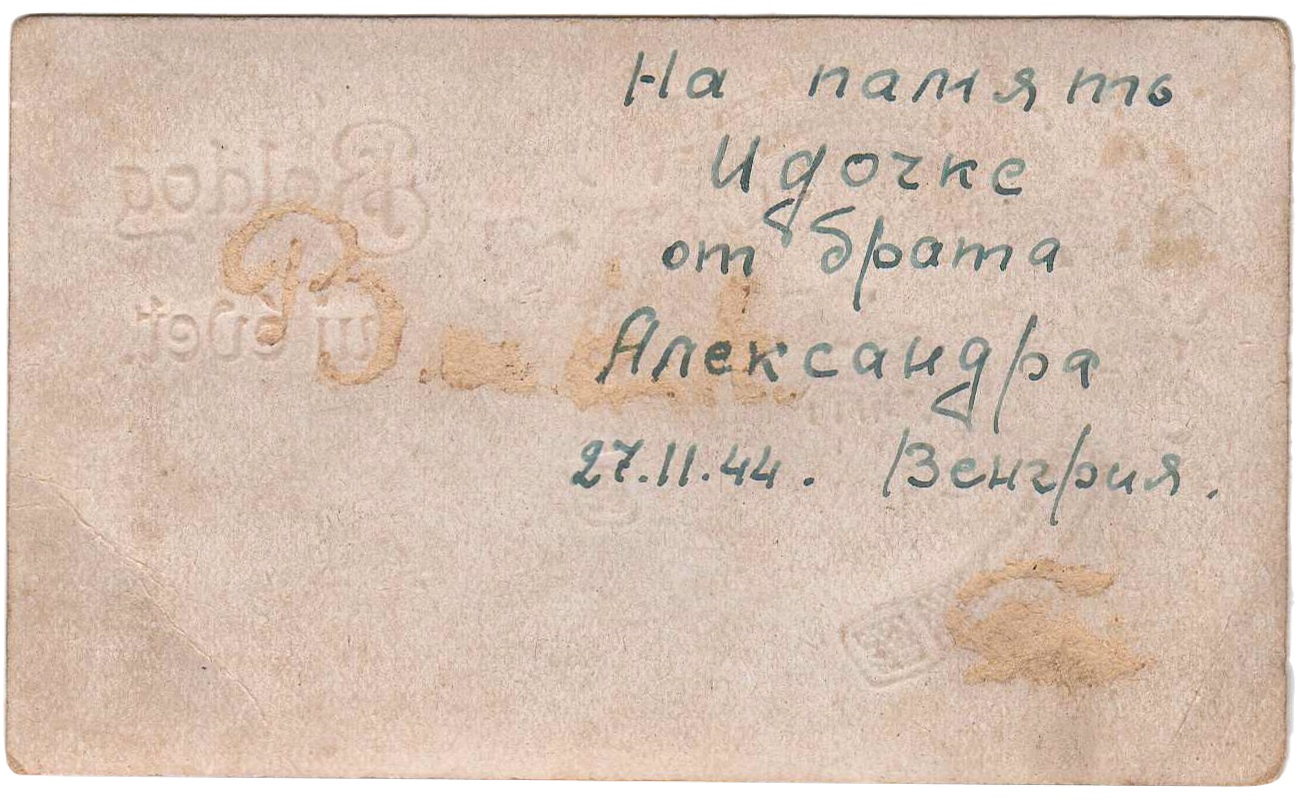 На память
Идочке
от брата
Александра
27.11.44. Венгрия.